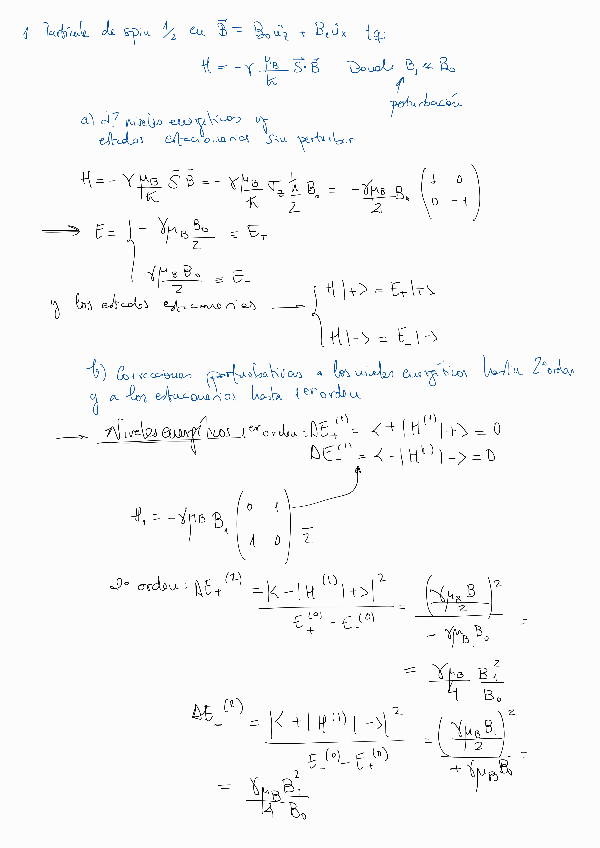 1 Partícula de spin 1/2 en B⃗ = B₀ûz + B₁ûx tq:
H = -γ μB/ħ S⃗·B⃗ Donde B₁ ≪ B₀
perturbación
a) d? niveles energéticos y
estados estacionarios sin perturbar
H = -γ μB/ħ S⃗ B⃗ = -γ μB/ħ σz ħ/2 B₀ = -γμB/2 B₀ (1 0
0 -1)
⟹ E = { -γμB B₀/2 ≡ E₊
γμB B₀/2 ≡ E₋
y los estados estacionarios → { H|+> = E₊|+>
H|-> = E₋|->
b) Correcciones perturbativas a los niveles energéticos hasta 2º orden
y a los estacionarios hasta 1er orden
→ Niveles energéticos 1er orden: ΔE₊⁽¹⁾ = <+|H⁽¹⁾|+> = 0
ΔE₋⁽¹⁾ = <-|H⁽¹⁾|-> = 0
H₁ = -γμB B₁ (0 1
1 0) 1/2
2º orden: ΔE₊⁽²⁾ = |<-|H⁽¹⁾|+>|² / E₊⁽⁰⁾ - E₋⁽⁰⁾ = (γμB B/2)² / -γμB B₀ =
= γμB/4 B₁²/B₀
ΔE₋⁽²⁾ = |<+|H⁽¹⁾|->|² / E₋⁽⁰⁾ - E₊⁽⁰⁾ = (γμB B₁/2)² / +γμB B₀ =
= γμB/4 B₁²/B₀